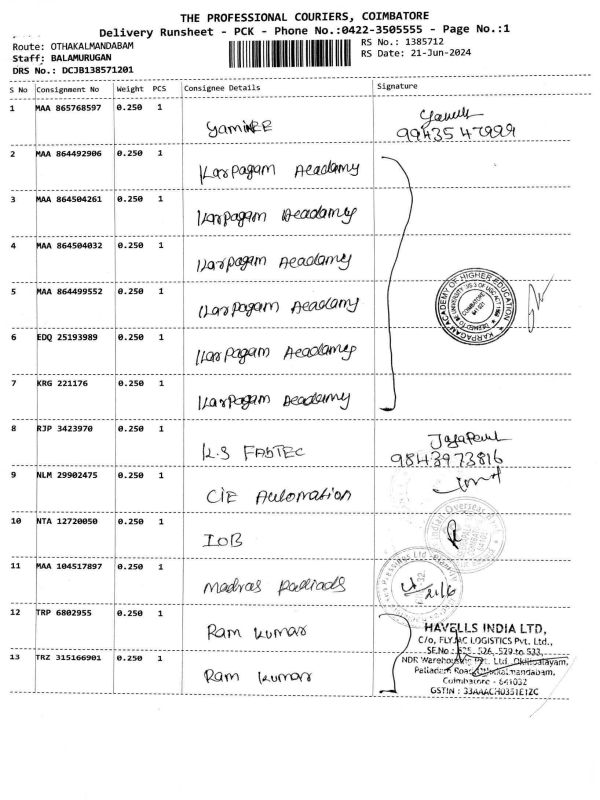 THE PROFESSIONAL COURIERS, COIMBATORE
Delivery Runsheet - PCK - Phone No.:0422-3505555 - Page No.:1
Route: OTHAKALMANDABAM
Staff: BALAMURUGAN
DRS No.: DCJB138571201
RS No.: 1385712
RS Date: 21-Jun-2024
S No Consignment No Weight PCS Consignee Details Signature
1 MAA 865768597 0.250 1 Yaminee
99435 47999
2 MAA 864492906 0.250 1 Karpagam Academy
3 MAA 864504261 0.250 1 Karpagam Academy
4 MAA 864504032 0.250 1 Karpagam Academy
5 MAA 864499552 0.250 1 Karpagam Academy
KARPAGAM ACADEMY OF HIGHER EDUCATION
COIMBATORE
641 021
6 EDQ 25193989 0.250 1 Karpagam Academy
7 KRG 221176 0.250 1 Karpagam Academy
8 RJP 3423970 0.250 1 K.S FABTEC
9843973816
9 NLM 29902475 0.250 1 CIE Automation
10 NTA 12720050 0.250 1 IOB
Indian Overseas
11 MAA 104517897 0.250 1 Madras
21/6
12 TRP 6802955 0.250 1 Ram Kumar
13 TRZ 315166901 0.250 1 Ram Kumar
HAVELLS INDIA LTD,
C/o, FLYJAC LOGISTICS Pvt. Ltd.,
SF.No : 525, 526, 529 to 533,
NDR Warehousing Pvt. Ltd.
Palladam Road, Othakalmandabam,
Coimbatore - 641032
GSTIN : 33AAACH0351E1ZC